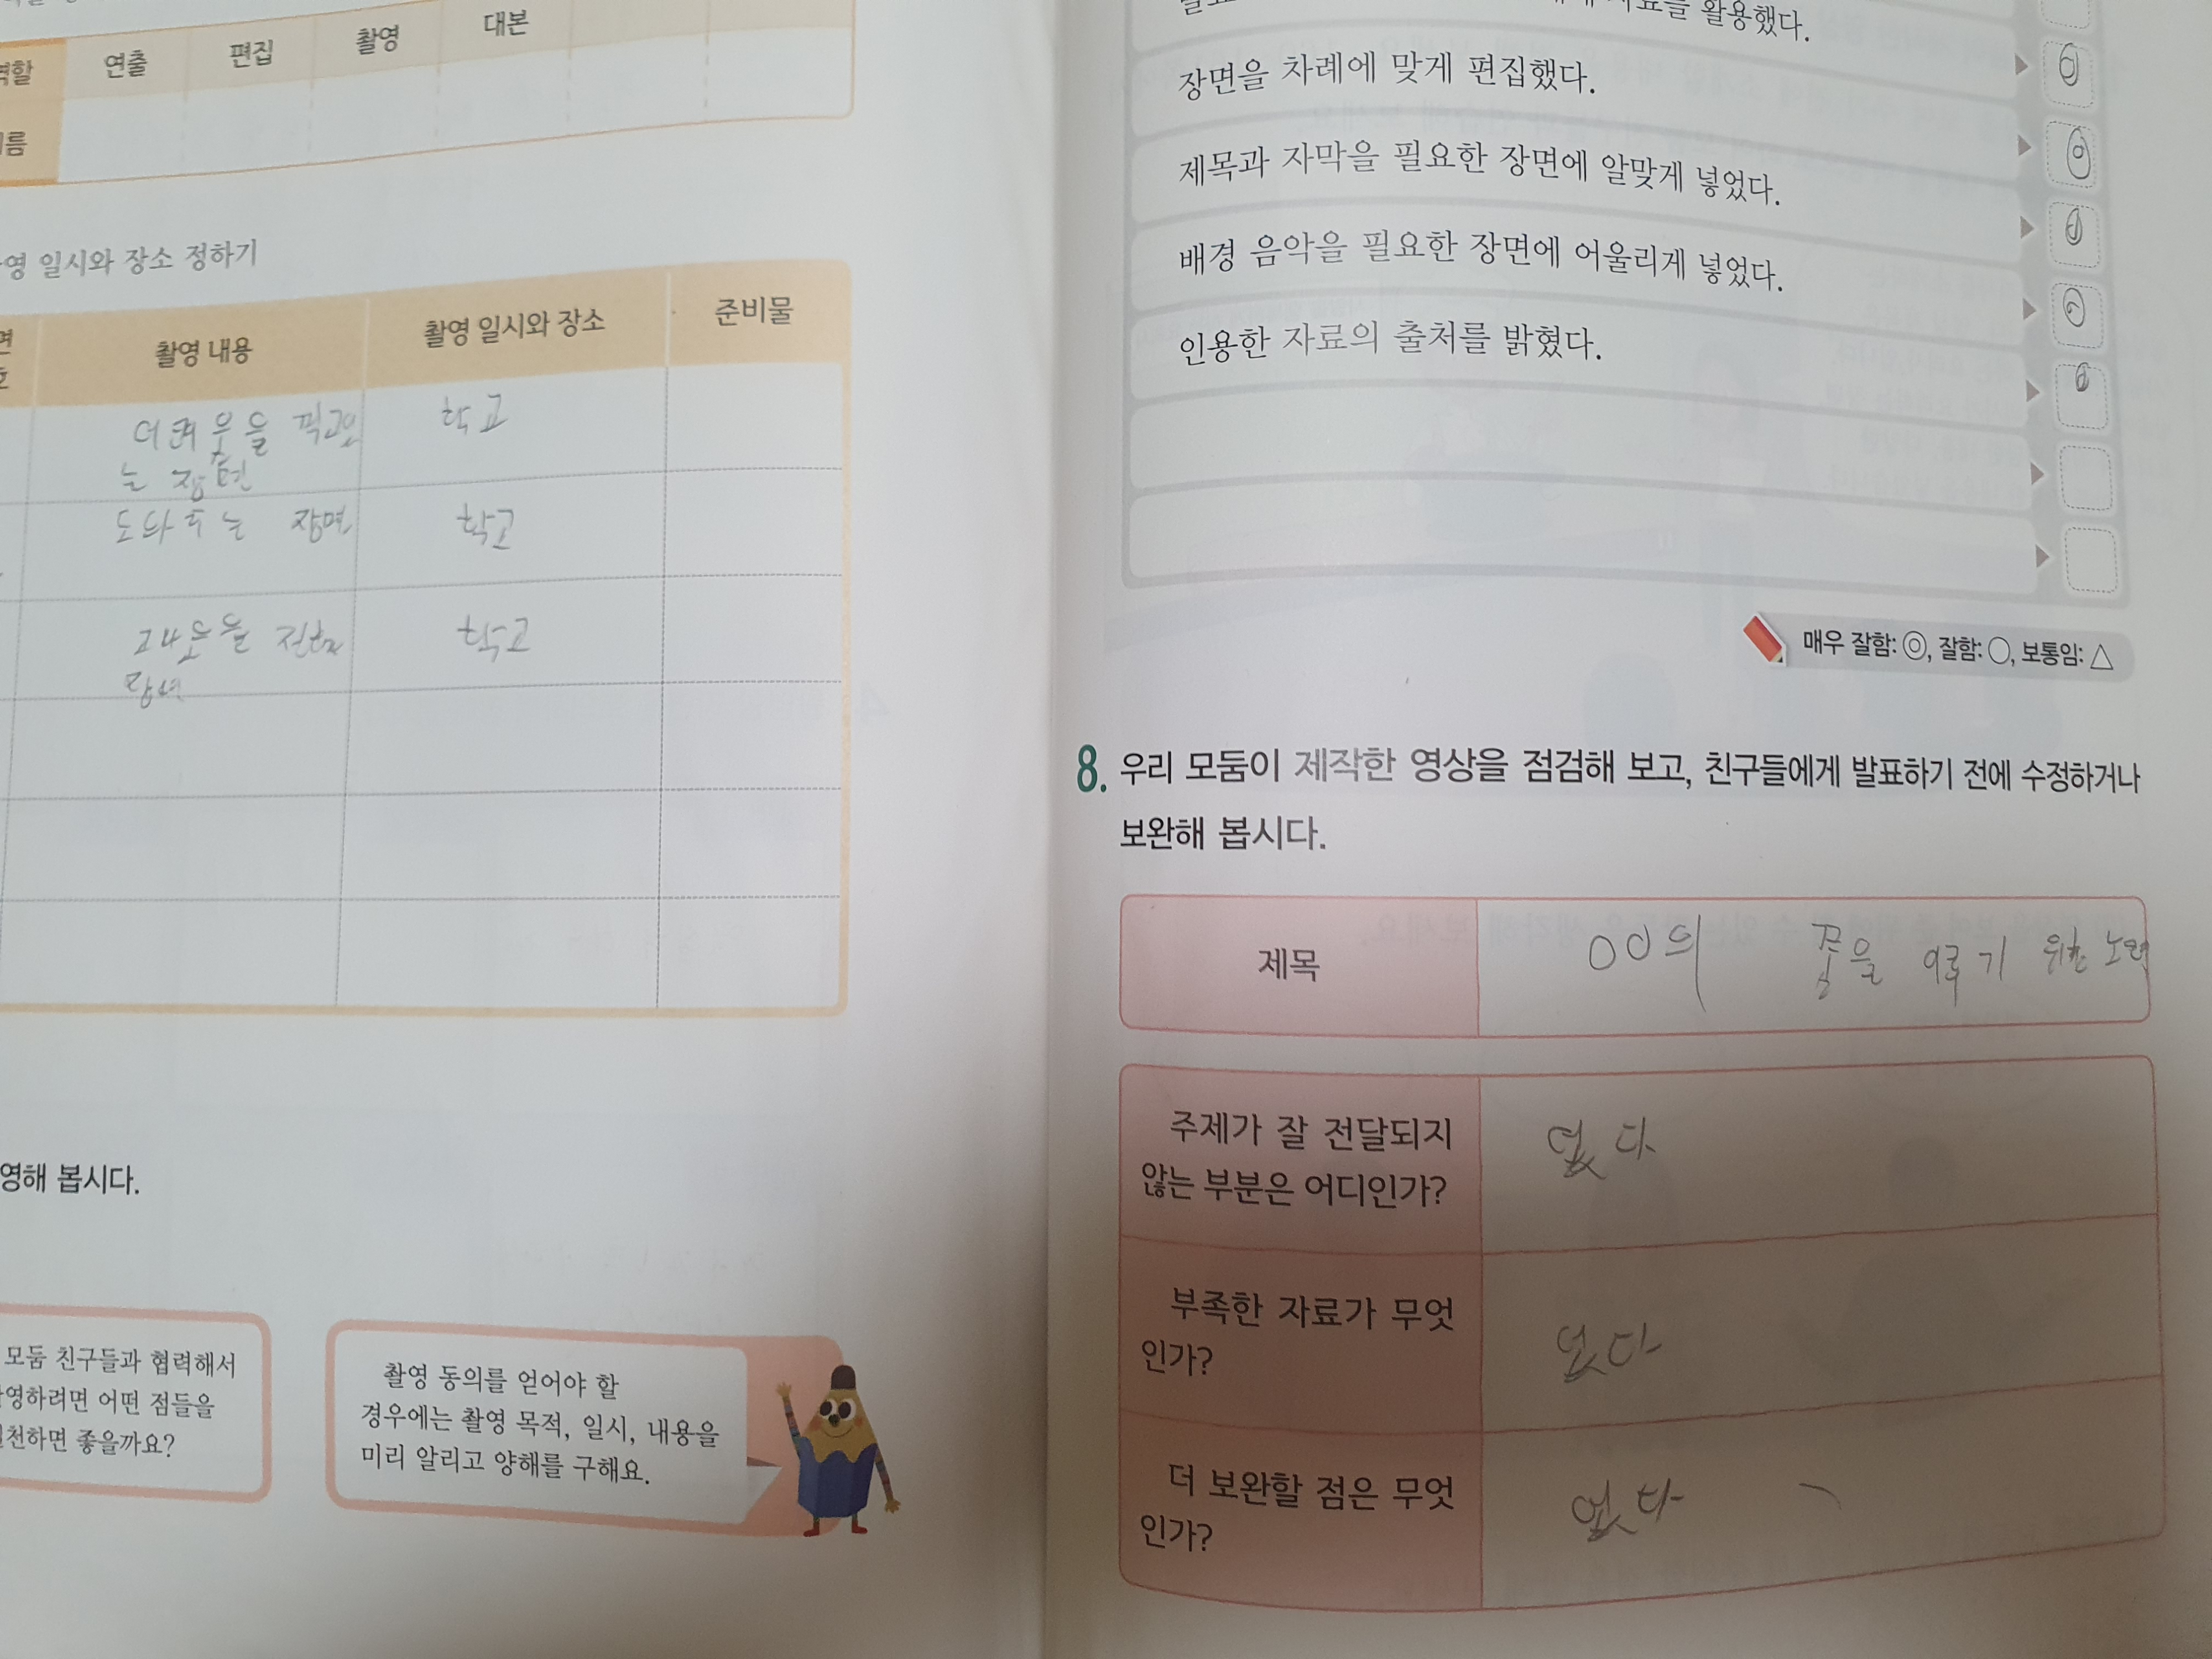 연출 편집 촬영 대본
일시와 장소 정하기
촬영 내용 촬영 일시와 장소 준비물
학교
는 장면
도와주는 장면 학교
학교
영해 봅시다.
모둠 친구들과 협력해서
영하려면 어떤 점들을
천하면 좋을까요?
촬영 동의를 얻어야 할
경우에는 촬영 목적, 일시, 내용을
미리 알리고 양해를 구해요.
활용했다.
장면을 차례에 맞게 편집했다.
제목과 자막을 필요한 장면에 알맞게 넣었다.
배경 음악을 필요한 장면에 어울리게 넣었다.
인용한 자료의 출처를 밝혔다.
매우 잘함: ◎, 잘함: ○, 보통임: △
8. 우리 모둠이 제작한 영상을 점검해 보고, 친구들에게 발표하기 전에 수정하거나
보완해 봅시다.
제목 OO의 꿈을 이루기 위한 노력
주제가 잘 전달되지
않는 부분은 어디인가?
없다
부족한 자료가 무엇
인가?
없다
더 보완할 점은 무엇
인가?
없다